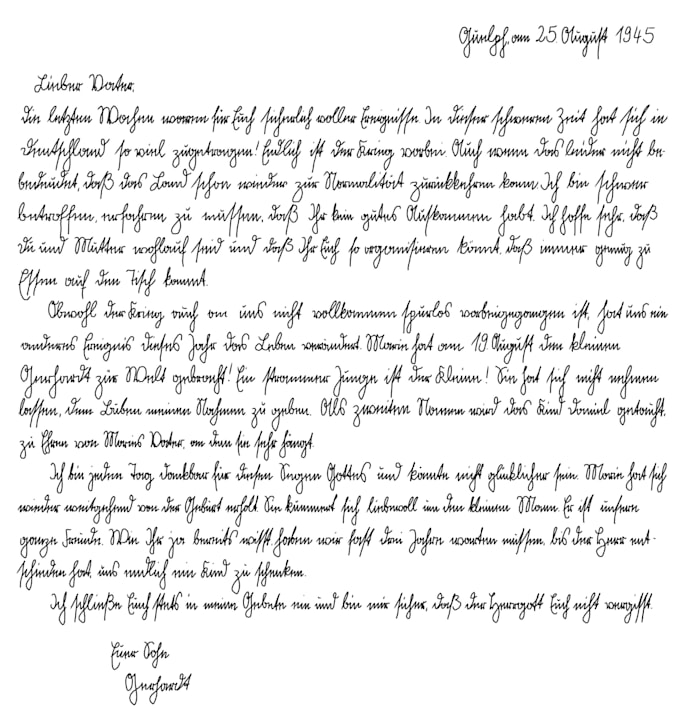 Guelph, am 25. August 1945
Lieber Vater,
die letzten Wochen waren für Euch sicherlich voller Ereignisse. In dieser schweren Zeit hat sich in
Deutschland so viel zugetragen! Endlich ist der Krieg vorbei. Auch wenn das leider nicht be-
bedeudet, daß das Land schon wieder zur Normalität zurückkehren kann. Ich bin schwer
betroffen, erfahren zu müssen, daß Ihr kein gutes Auskommen habt. Ich hoffe sehr, daß
Du und Mutter wohlauf seid und daß Ihr Euch so organisieren könnt, daß immer genug zu
Essen auf den Tisch kommt.
Obwohl der Krieg auch an uns nicht vollkommen spurlos vorbeigegangen ist, hat uns ein
anderes Ereignis dieses Jahr das Leben verändert. Marie hat am 19. August den kleinen
Gerhardt zur Welt gebracht! Ein strammer Junge ist der Kleine! Sie hat sich nicht nehmen
lassen, dem Buben meinen Nahmen zu geben. Als zweiten Namen wird das Kind Daniel getauft,
zu Ehren von Maries Vater, an dem sie sehr hängt.
Ich bin jeden Tag dankbar für diesen Segen Gottes und könnte nicht glücklicher sein. Marie hat sich
wieder weitgehend von der Geburt erholt. Sie kümmert sich liebevoll um den kleinen Mann. Er ist unsere
ganze Freude. Wie Ihr ja bereits wisst, haben wir fast drei Jahre warten müssen, bis der Herr ent-
schieden hat, uns endlich ein Kind zu schenken.
Ich schließe Euch stets in meine Gebete ein und bin mir sicher, daß der Herrgott Euch nicht vergisst.
Euer Sohn
Gerhardt